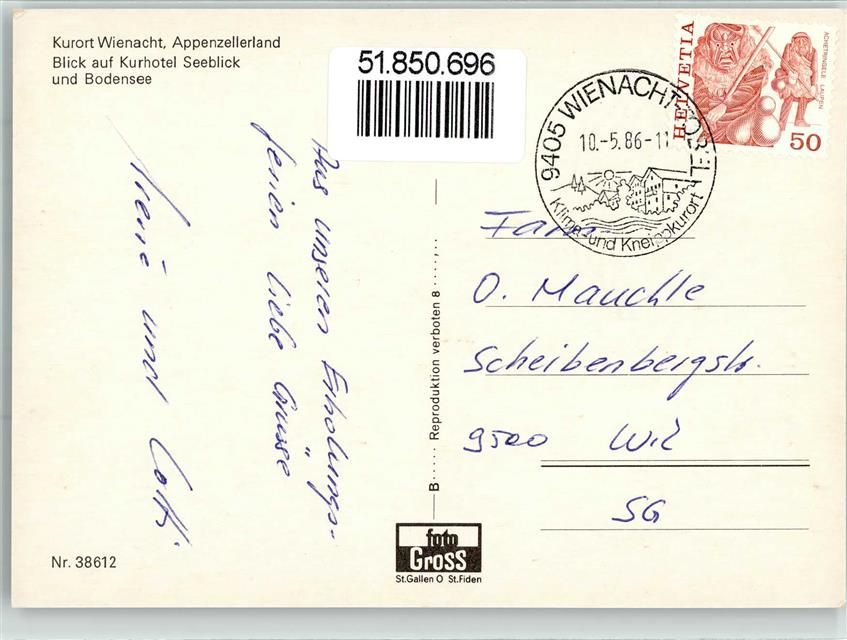 Kurort Wienacht, Appenzellerland
Blick auf Kurhotel Seeblick
und Bodensee
51.850.696
HELVETIA
ACHETRINGELE LAUPEN
50
9405 WIENACHT-TOBEL
10.-5.86-11
Klima- und Kneippkurort
Aus unseren Erholungs-
ferien liebe Grüsse
und Lotti
Fam.
O. Mauchle
Scheibenbergstr.
9500 Wil
SG
B..... Reproduktion verboten 8 .....
foto
Gross
St.Gallen O St.Fiden
Nr. 38612